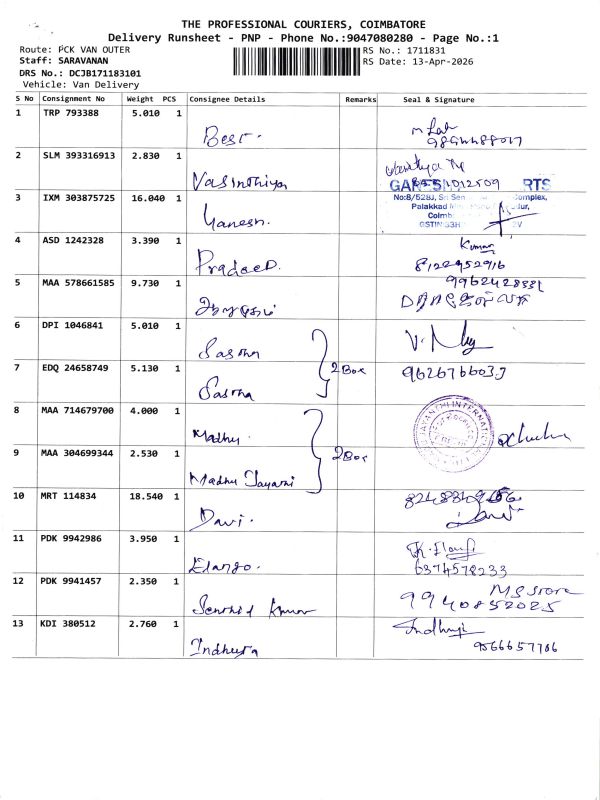 THE PROFESSIONAL COURIERS, COIMBATORE
Delivery Runsheet - PNP - Phone No.:9047080280 - Page No.:1
Route: PCK VAN OUTER
RS No.: 1711831
Staff: SARAVANAN
RS Date: 13-Apr-2026
DRS No.: DCJB171183101
Vehicle: Van Delivery
S No Consignment No Weight PCS Consignee Details Remarks Seal & Signature
1 TRP 793388 5.010 1 Best.
2 SLM 393316913 2.830 1 Vasinthiya
3 IXM 303875725 16.040 1 Ganesh.
No:8/528J, Sri Sen complex,
Palakkad
Coimb
GSTIN:33H
4 ASD 1242328 3.390 1 Pradeep. Kumar
8122952916
5 MAA 578661585 9.730 1 9962428331
6 DPI 1046841 5.010 1
2 Box
7 EDQ 24658749 5.130 1
8 MAA 714679700 4.000 1 Madhu.
JAYANTHI INTERNATIONAL
2 Box
9 MAA 304699344 2.530 1 Madhu Jayanti
10 MRT 114834 18.540 1 Davi.
11 PDK 9942986 3.950 1 Elango.
6374578233
12 PDK 9941457 2.350 1 Kumar
9940852025
13 KDI 380512 2.760 1 Indhuja
9566657706